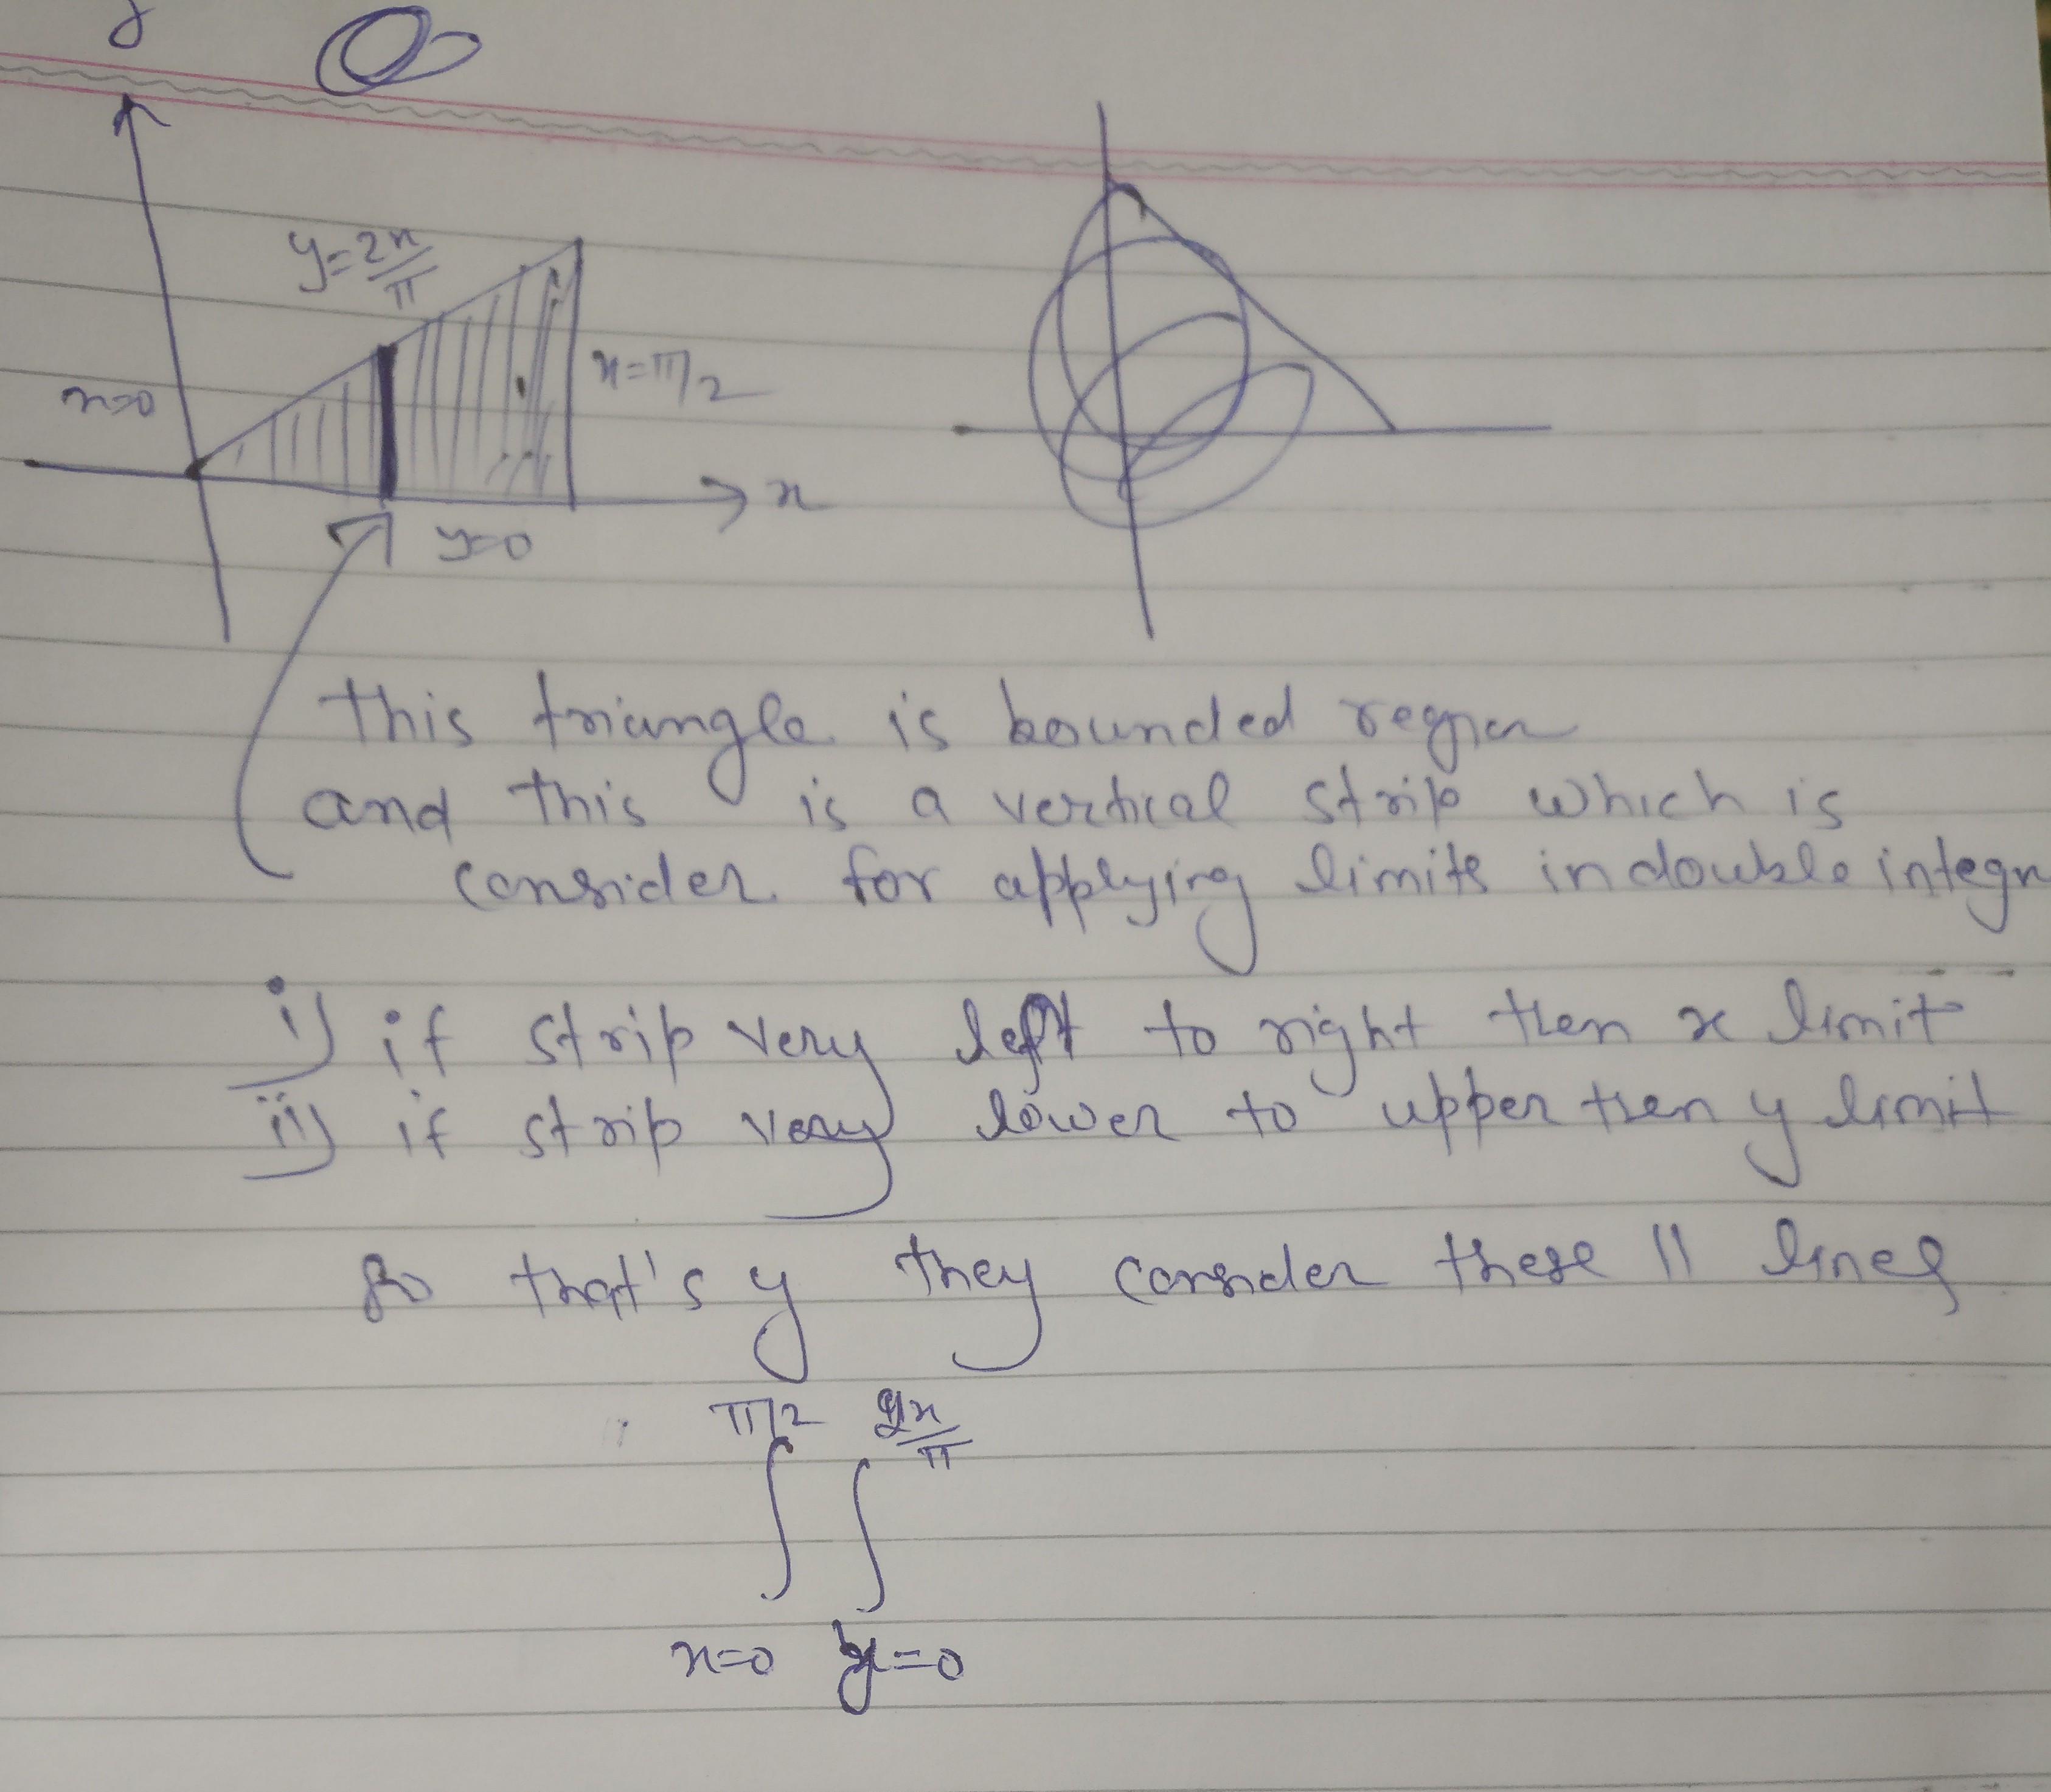 y
y=2x/π
x=0
x=π/2
x
y=0
this triangle is bounded region
and this is a vertical strip which is
consider for applying limits in double integr
i) if strip very left to right then x limit
ii) if strip very lower to upper then y limit
so that's y they consider these || lines
π/2 2x/π
∫ ∫
x=0 y=0